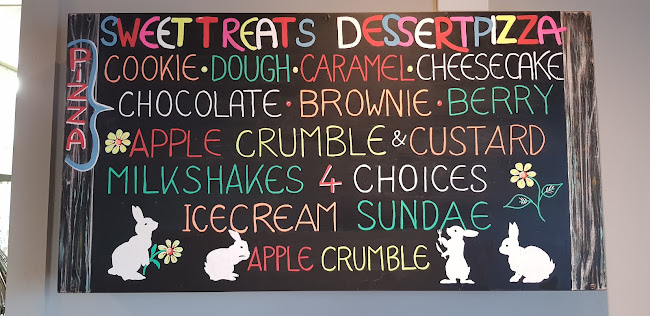 SWEET TREATS DESSERTPIZZA
PIZZA
COOKIE • DOUGH • CARAMEL • CHEESECAKE
CHOCOLATE • BROWNIE • BERRY
APPLE CRUMBLE & CUSTARD
MILKSHAKES 4 CHOICES
ICECREAM SUNDAE
APPLE CRUMBLE